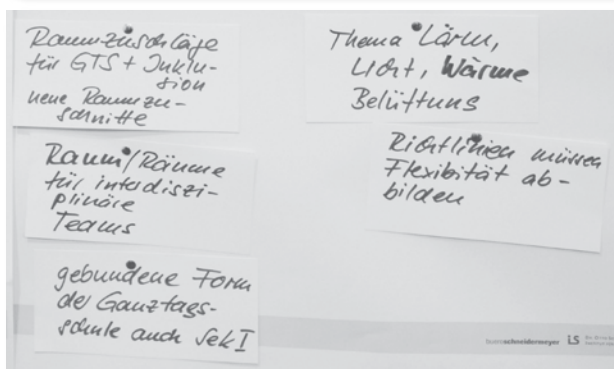 Raumzuschläge
für GTS + Inklu-
sion
neue Raumzu-
schnitte
Raum/Räume
für interdiszi-
plinäre
Teams
gebundene Form
der Ganztags-
schule auch Sek I
Thema Lärm,
Licht, Wärme
Belüftung
Richtlinien müssen
Flexibilität ab-
bilden
buero schneidermeyer LS